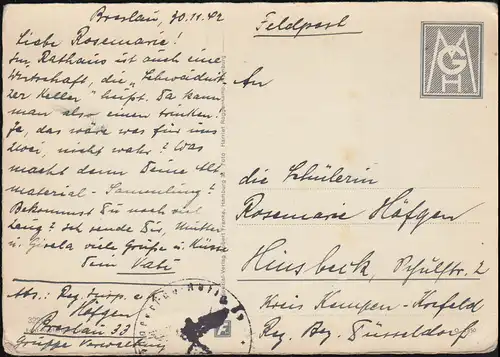 Breslau, 30.11.42
Liebe Rosemarie!
Im Rathaus ist auch eine
Wirtschaft, die „Schweidnit-
zer Keller" heißt. Da kann
man also einen trinken.
Ja, das wäre was für uns
zwei, nicht wahr? Was
macht denn Deine Alt
material-Sammlung?
Bekommst Du noch viel
Zeug? Ich sende Dir, Mutter
u. Gisela viele Grüße u. Küsse
Dein Vati
Abs: Reg.
Höfgen
Breslau
Gruppe Verwaltung
Feldpost
MGH
An
die Schülerin
Rosemarie Höfgen
Hinsbeck, Schulstr. 2
Kreis Kempen-Krefeld
Reg. Bez. Düsseldorf